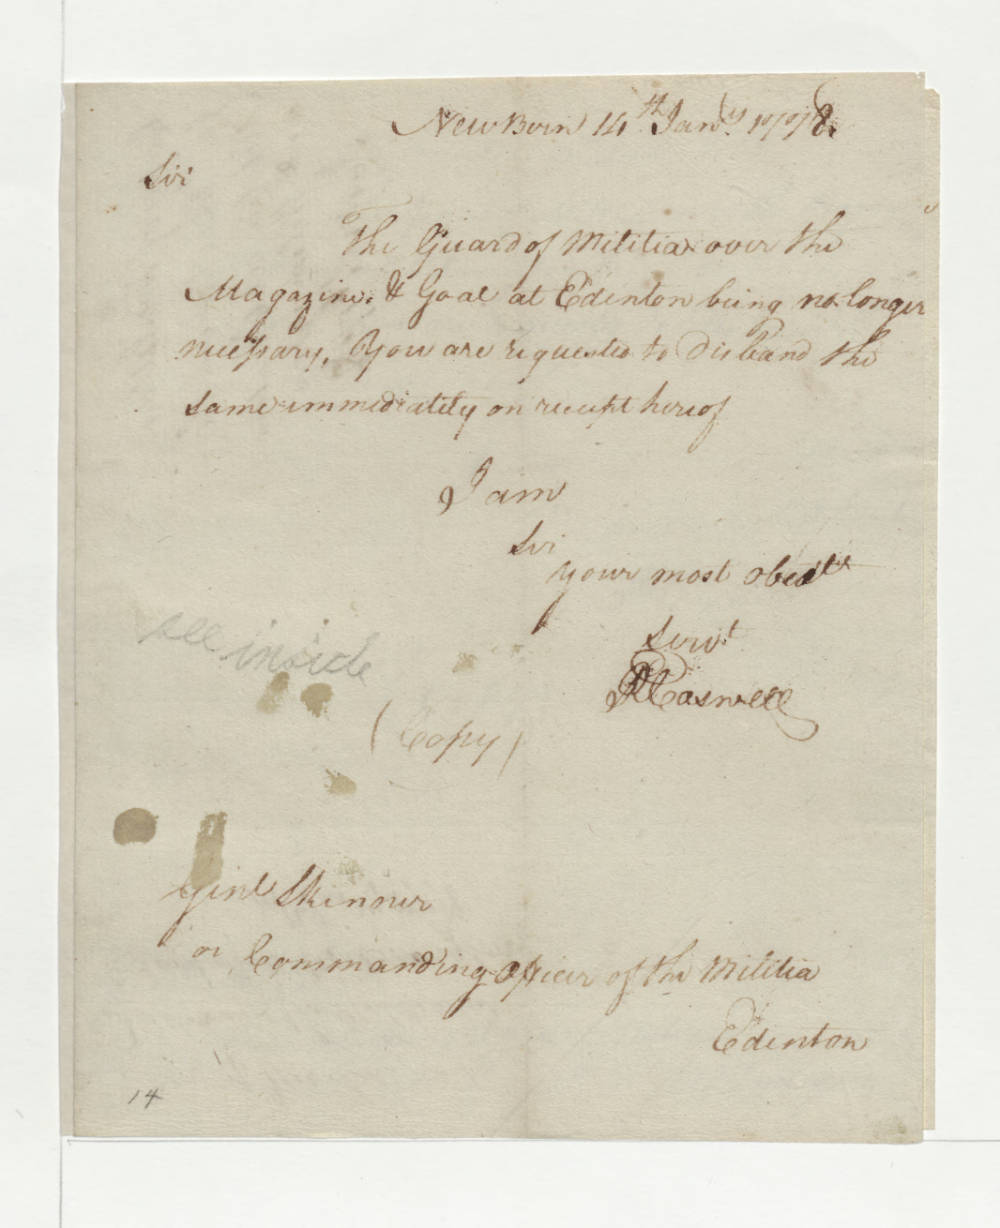 New Bern 14th Jany. 1778.
Sir
The Guard of Militia over the
Magazine & Goal at Edenton being no longer
necessary, You are requested to disband the
same immediately on receipt hereof
I am
Sir
your most obedt
servt
R Caswell
see inside
(Copy)
Genl Skinner
or Commanding Officer of the Militia
Edenton
14